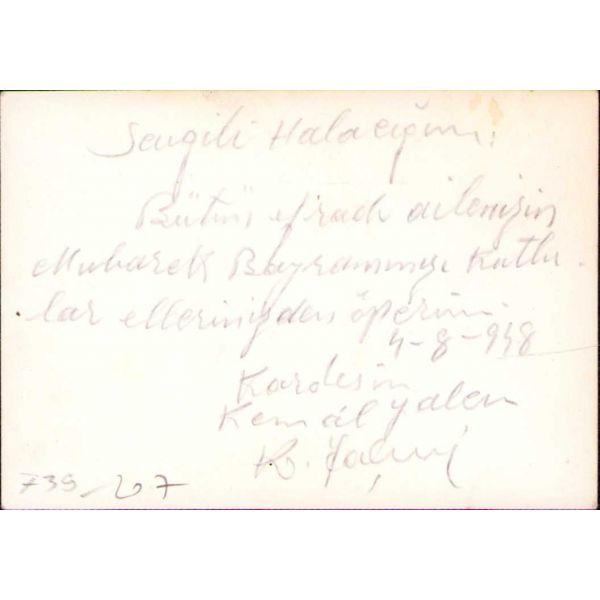 Sevgili Halacığım:
Bütün efradı ailenizin
Mubarek Bayramınızı kutlu-
lar ellerinizden öperim.
4-8-948
Kardesin
Kemâl Yalçın
K. Yalçın
739-207